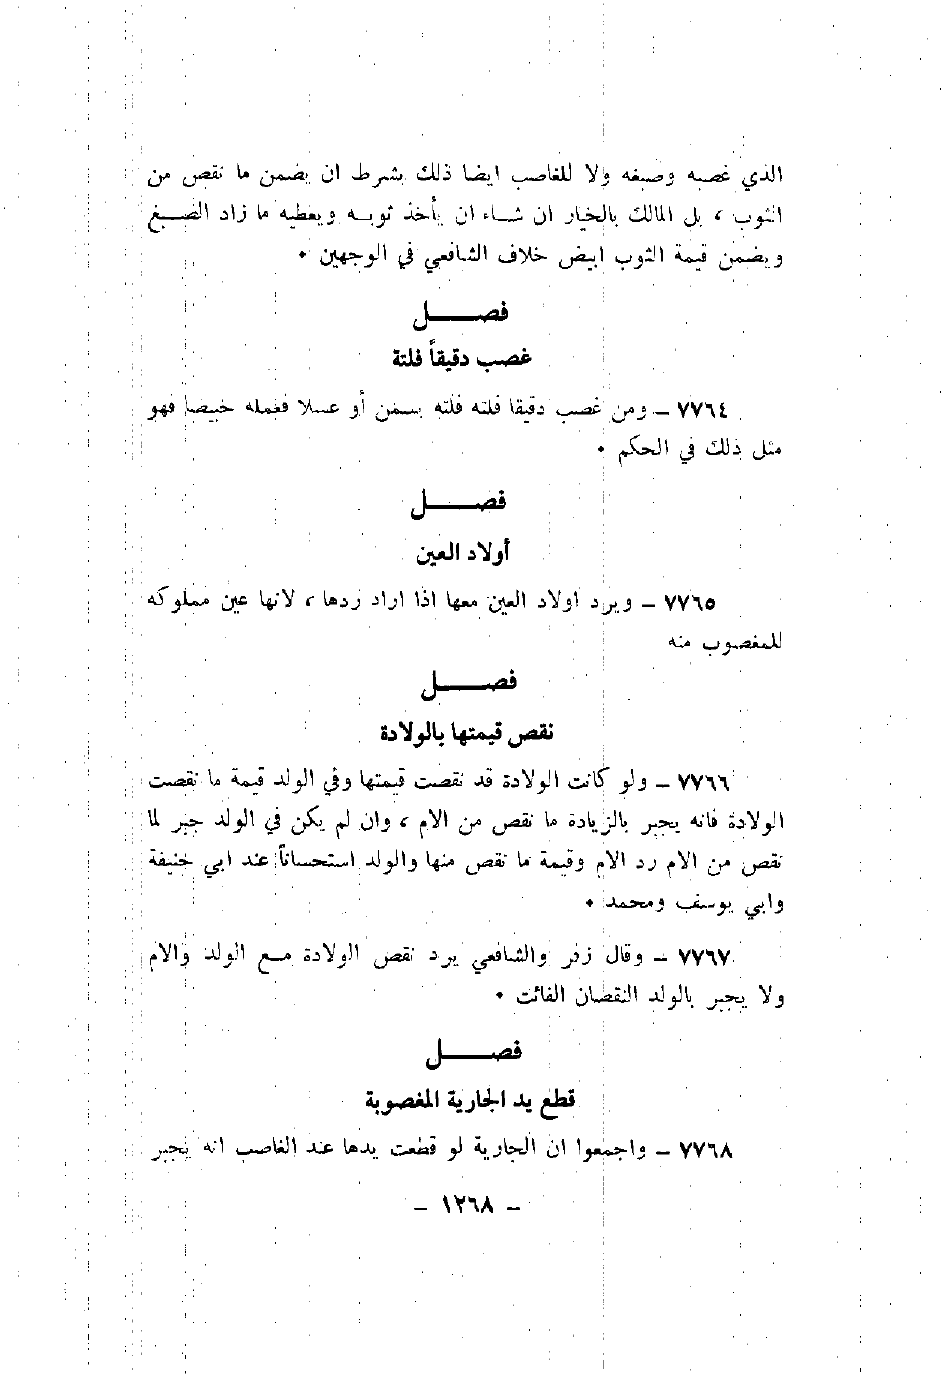 الذي غصبه وصبغه ولا للغاصب ايضا ذلك بشرط ان يضمن ما نقص من
الثوب ، بل المالك بالخيار ان شاء ان يأخذ ثوبه ويعطيه ما زاد الصبغ
ويضمن قيمة الثوب ابيض خلاف الشافعي في الوجهين ٠
فصـــــل
غصب دقيقاً فلتة
٧٧٦٤ – ومن غصب دقيقا فلته فلته بسمن أو عسلا فعمله خبيصا فهو
مثل ذلك في الحكم ٠
فصـــــل
أولاد العين
٧٧٦٥ – ويرد اولاد العين معها اذا اراد ردها ، لانها عين مملوكه
للمغصوب منه
فصـــــل
نقص قيمتها بالولادة
٧٧٦٦ – ولو كانت الولادة قد نقصت قيمتها وفي الولد قيمة ما نقصت
الولادة فانه يجبر بالزيادة ما نقص من الام ، وان لم يكن في الولد جبر لما
نقص من الام رد الام وقيمة ما نقص منها والولد استحساناً عند ابي حنيفة
وابي يوسف ومحمد ٠
٧٧٦٧ – وقال زفر والشافعي يرد نقص الولادة مـع الولد والام
ولا يجبر بالولد النقصان الفائت ٠
فصـــــل
قطع يد الجارية المغصوبة
٧٧٦٨ – واجمعوا ان الجارية لو قطعت يدها عند الغاصب انه يجبر
– ١٢٦٨ –